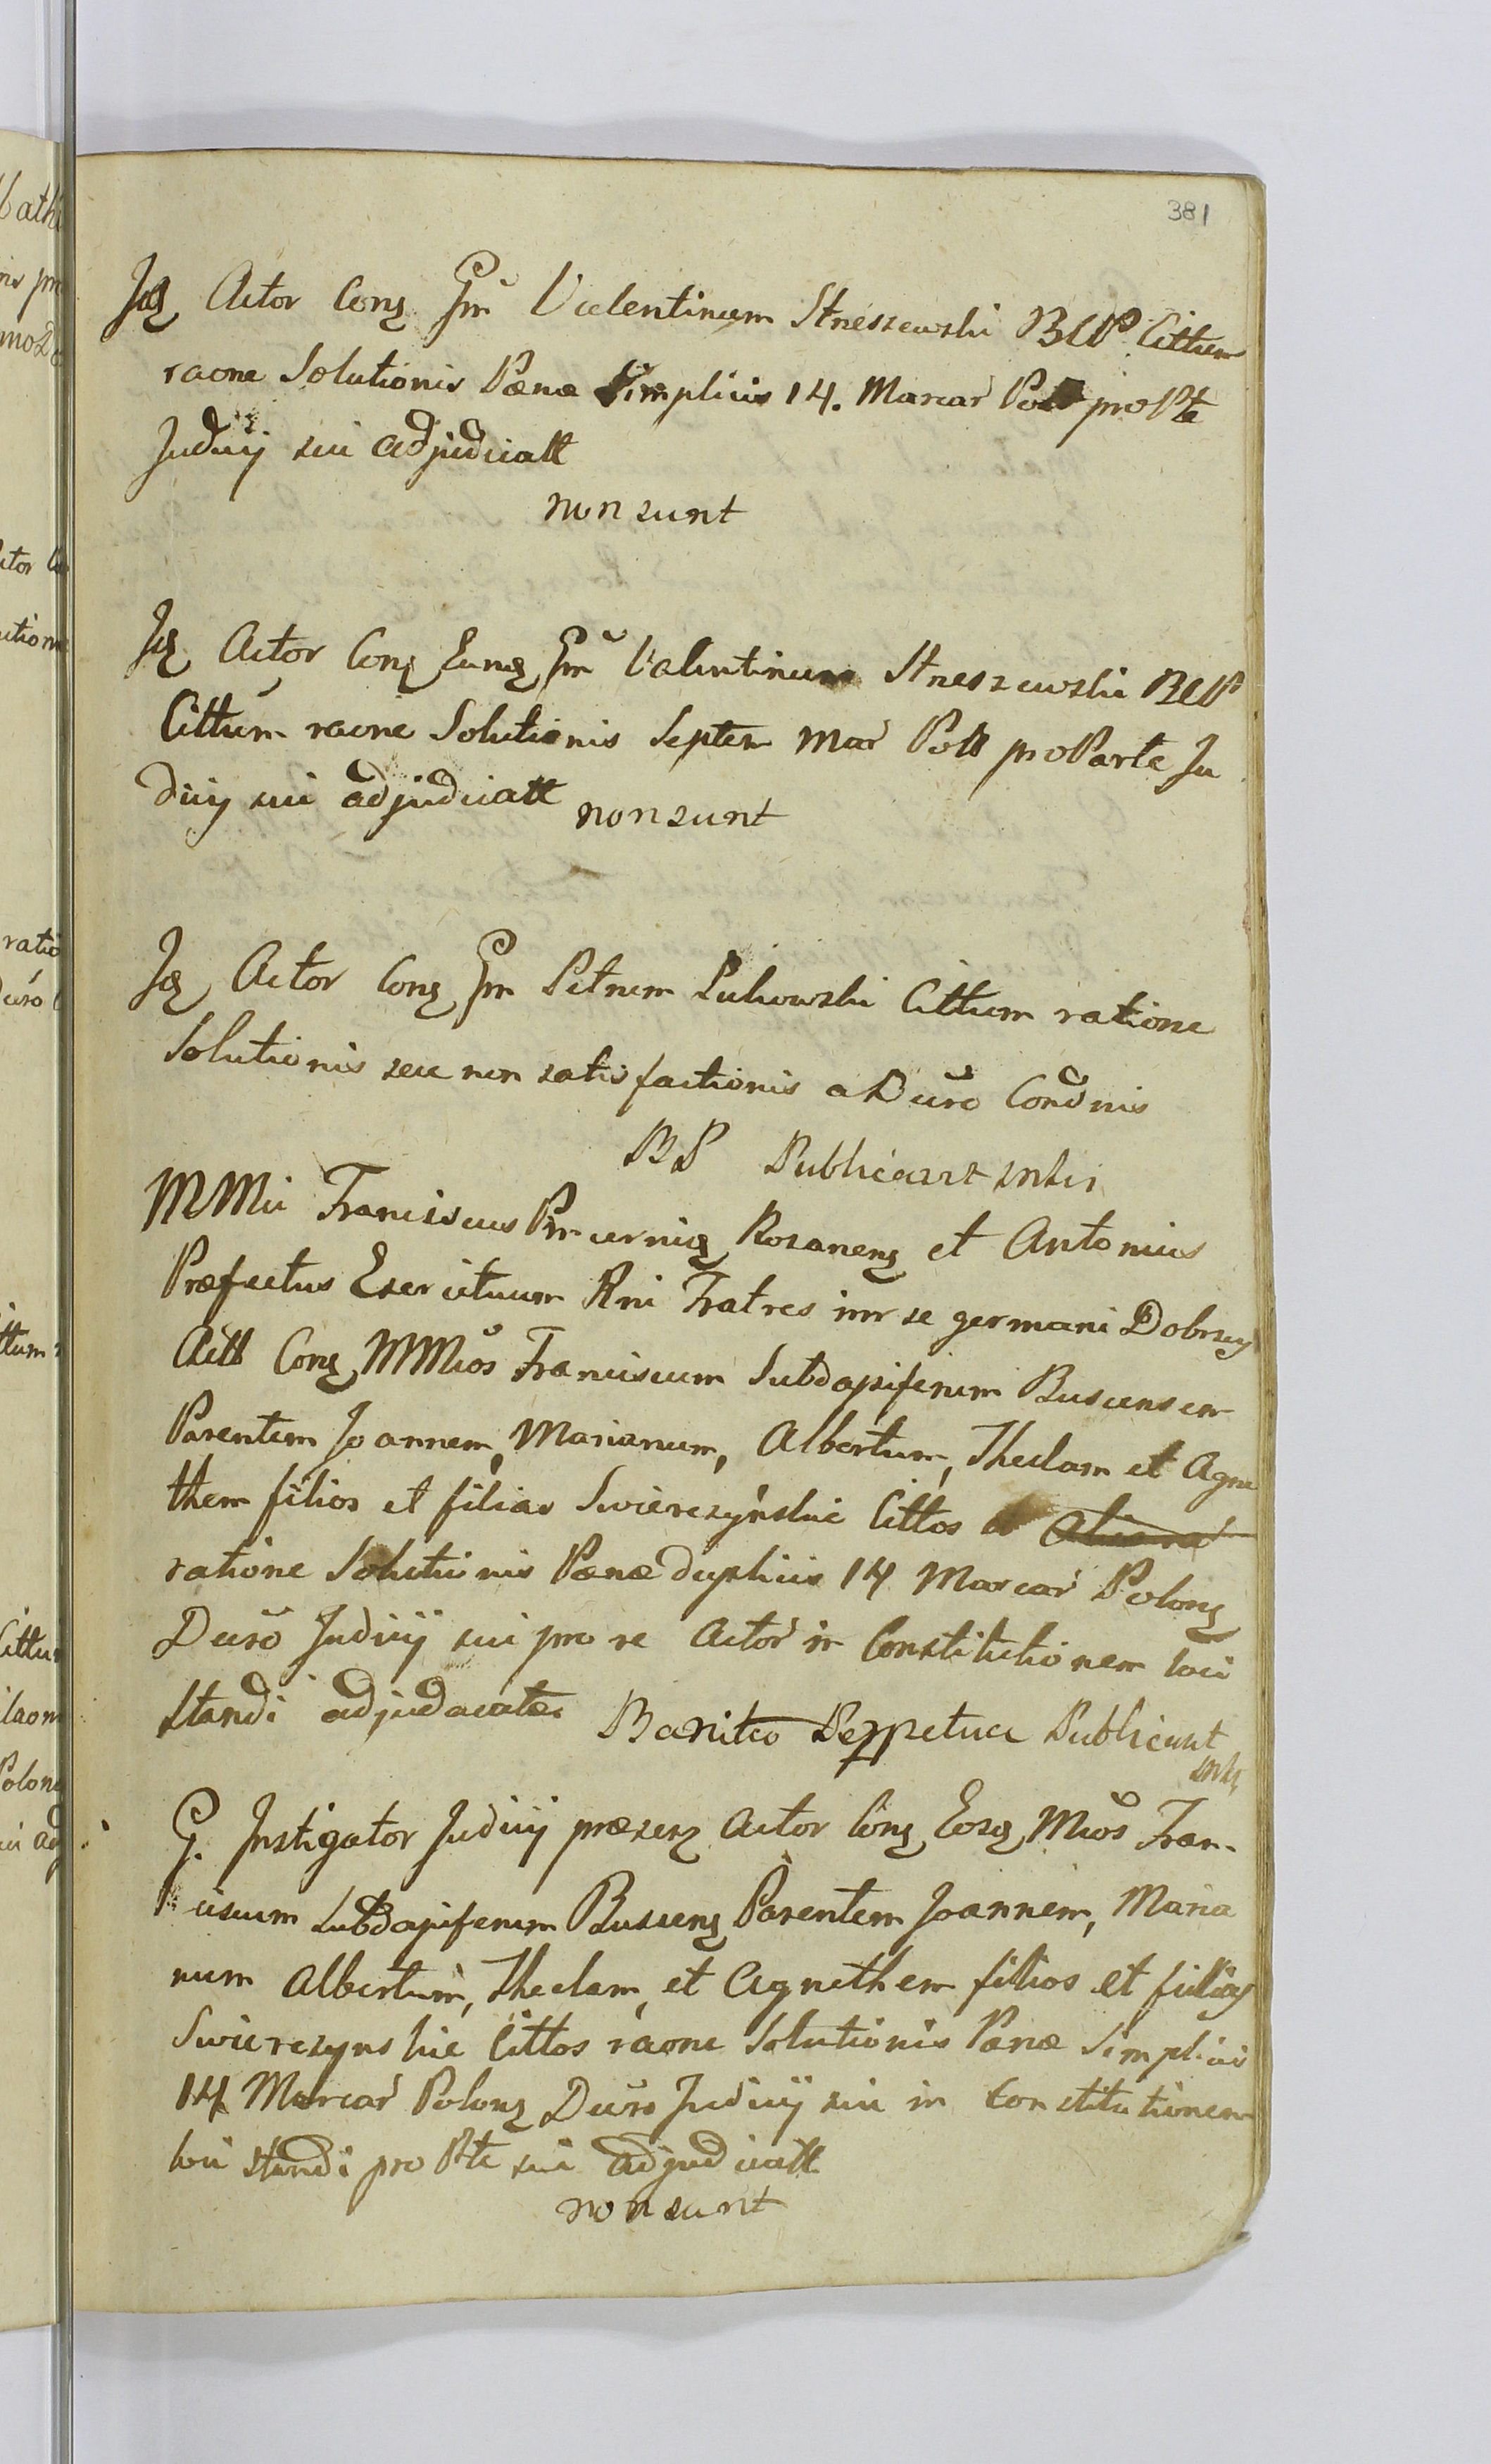 381
Idq Actor Conq Gm Valentinum Streszewski BCP Cittum
raone Solutionis Pænæ Simplicis 14. Marcar Poll pro Pte
Judicij sui adjudicatt
non sunt
Idq Actor Conq Eunq Gm Valentinum Streszewski BCP
Cittum raone Solutionis Septem Mar Poll pro Parte Ju
dicij sui adjudicatt non sunt
Idq Actor Conq Gm Petrum Lukowski Cittum ratione
Solutionis seu non satisfactionis a Decro Condnis
BP Publicarrt
MMci Franciscus Pincerniq Rozanenq et Antonius
Præfectus Exercituum Rni Fratres inr se germani Dobrscy
Actt Conq MMcos Franciscum Subdapiferum Buscensem
Parentem Joannem, Marianum, Albertum, Theclam et Agne
them filios et filias Swierczynskie Cittos
ratione Solutionis Pænæ duplicis 14 Marcar Polonq
Decro Judicij sui pro re Actor in Constitutionem loci
standi adjudacatæ Banitio Perpetua Publicant
G. Instigator Judicij præsenq Actor Conq Eosq Mcos Fran-
ciscum Subdapiferum Buscenq Parentem Joannem, Maria
num Albertum, Theclam, et Agnethem fillios et fillias
Swierczynskie Cittos raone Solutionis Pænæ Simplicis
14 Marcar Polonq Decro Judicij sui in Constitutionem
loci standi pro Pte sui adjudicatt
non sunt